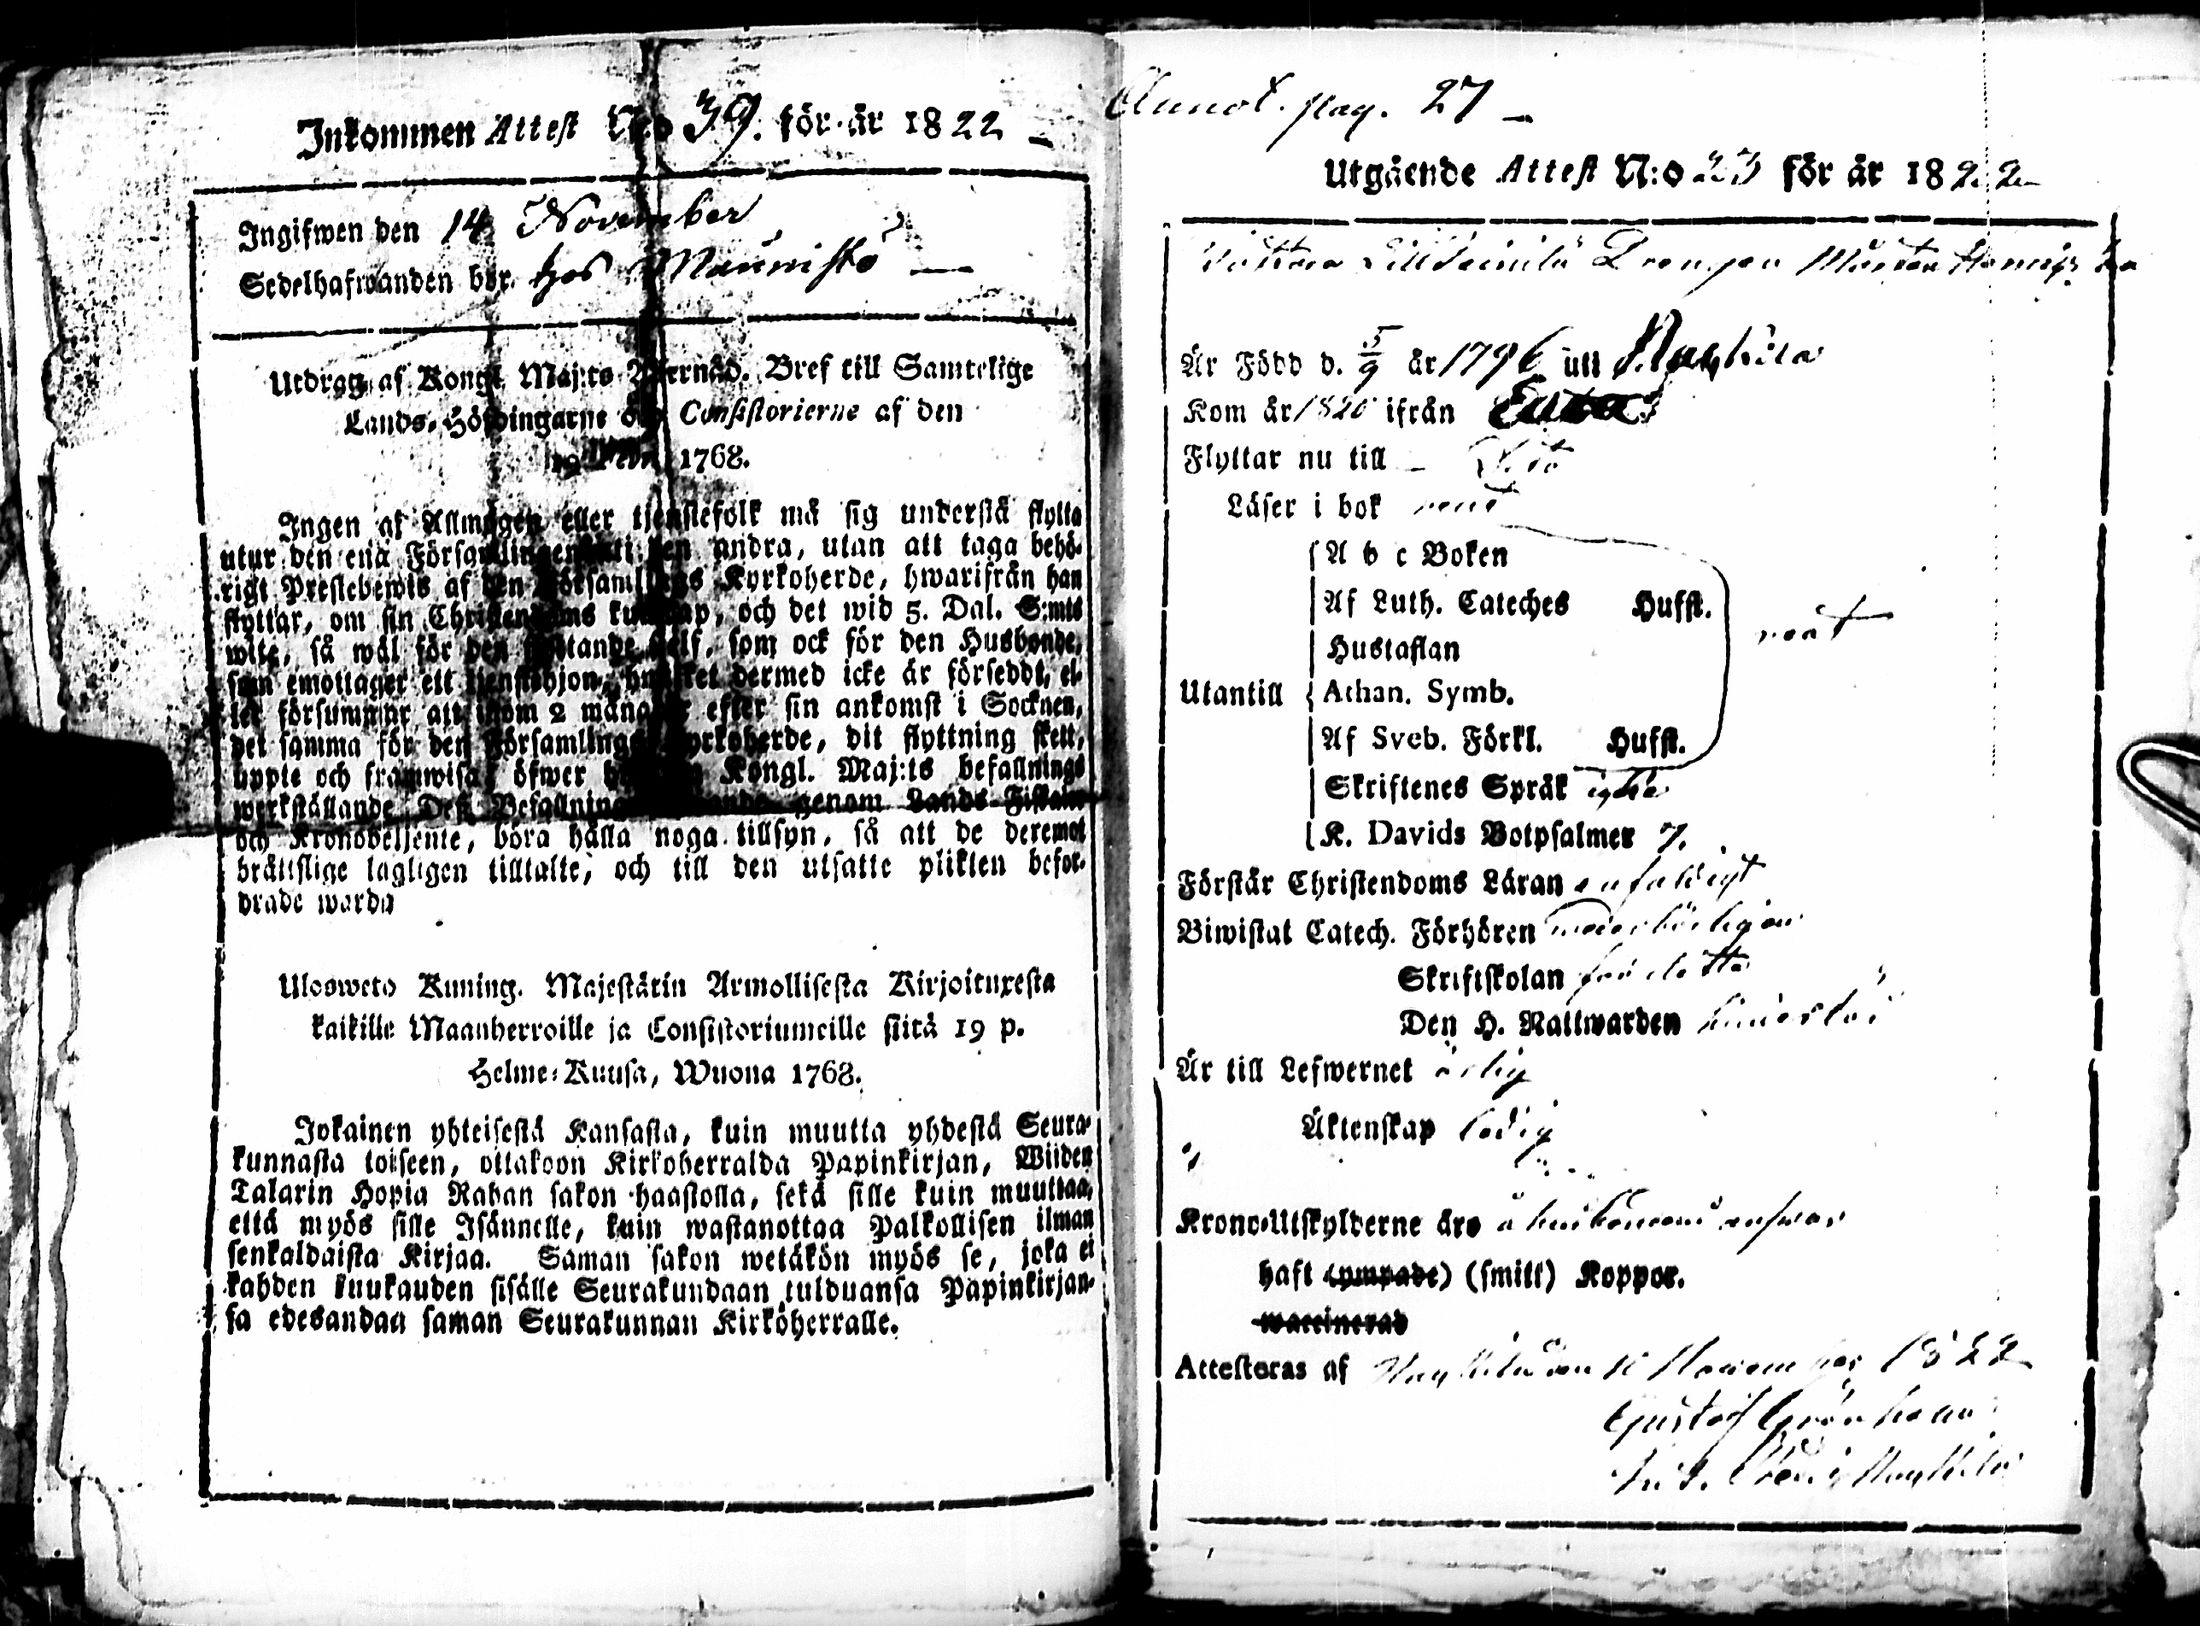 Inkommen Attest N:o 39. för år 1822
Ingifwen den 14 November
Sedelhafwanden bor. hos Maunisto
Utdrag af Kongl. Maj:ts Bref till Samtelige
Lands-Höfdingarne och Consistorierne af den
19 1768.
Ingen af Allmogen eller tjenstefolk må sig understå flytta
utur den ena Församlingen till den andra, utan att taga behö-
rigt Prestebewis af den Församlings Kyrkoherde, hwarifrån han
flyttar, om sin Christendoms kunskap, och det wid 5. Dal. S:mts
wite, så wäl för den flyttande self, som ock för den Husbonde,
som emottager ett tjenstehjon, hwilket dermed icke är förseddt, el-
ler försummar att inom 2 månader efter sin ankomst i Socknen,
det samma för den Församlings Kyrkoherde, dit flyttning skett,
uppte och framwisa, öfwer Kongl. Maj:ts befallnings
werkställande Dess Befallning genom Lands-Fiskaler
och Kronobetjente, böra hålla noga tillsyn, så att de deremot
brättslige lagligen tilltalte, och till den utsatte plikten befor-
drade warda
Ulosweto Kuning. Majestärin Armollisesta Kirjoituxesta
kaikille Maanherroille ja Consistoriumeille siitä 19 p.
Helme-Kuusa, Wuona 1768.
Jokainen yhteisestä Kansasta, kuin muutta yhdestä Seura-
kunnasta toiseen, ottakoon Kirkoherralda Papinkirjan, Wiiden
Talarin Hopia Rahan sakon haastolla, sekä sille kuin muuttaa,
että myös sille Isännelle, kuin wastanottaa Palkollisen ilman
senkaldaista Kirjaa. Saman sakon wetäkön myös se, joka ei
kahden kuukauden sisälle Seurakundaan tulduansa Papinkirjan-
sa edesandaa saman Seurakunnan Kirköherralle.
Annot. pag. 27
Utgående Attest N:o 23 för år 1822
Drengen
Är Född d. 5/9 år 1796 uti Nagkila
Kom år 1820 ifrån Eura
Flyttar nu till
Läser i bok rent
A b c Boken
Af Luth. Cateches Hufst.
Hustaflan
Utantill Athan. Symb.
Af Sveb. Förkl. Hufst.
Skriftenes Språk
K. Davids Botpsalmer 7.
Förstår Christendoms Läran enfaldigt
Biwistat Catech. Förhören wederbörligen
Skriftskolan för detta
Den H. Nattwarden
Är till Lefwernet ärlig
Äktenskap ledig
Krono-Utskylderne äro å husbondens answar
haft (ympade) (smitt) Koppor.
waccinerad
Attesteras af den November 1822
Gustaf Grönholm